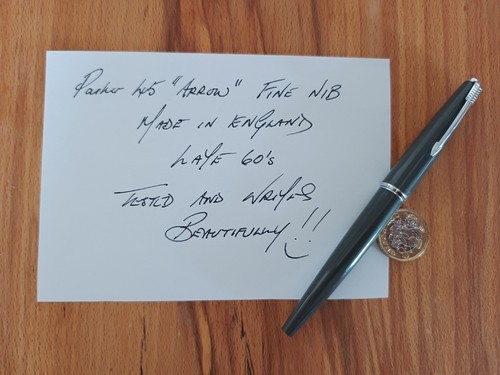 Parker 45 "Arrow" Fine Nib
Made in England
Late 60's
Tested and Writes
Beautifully!!